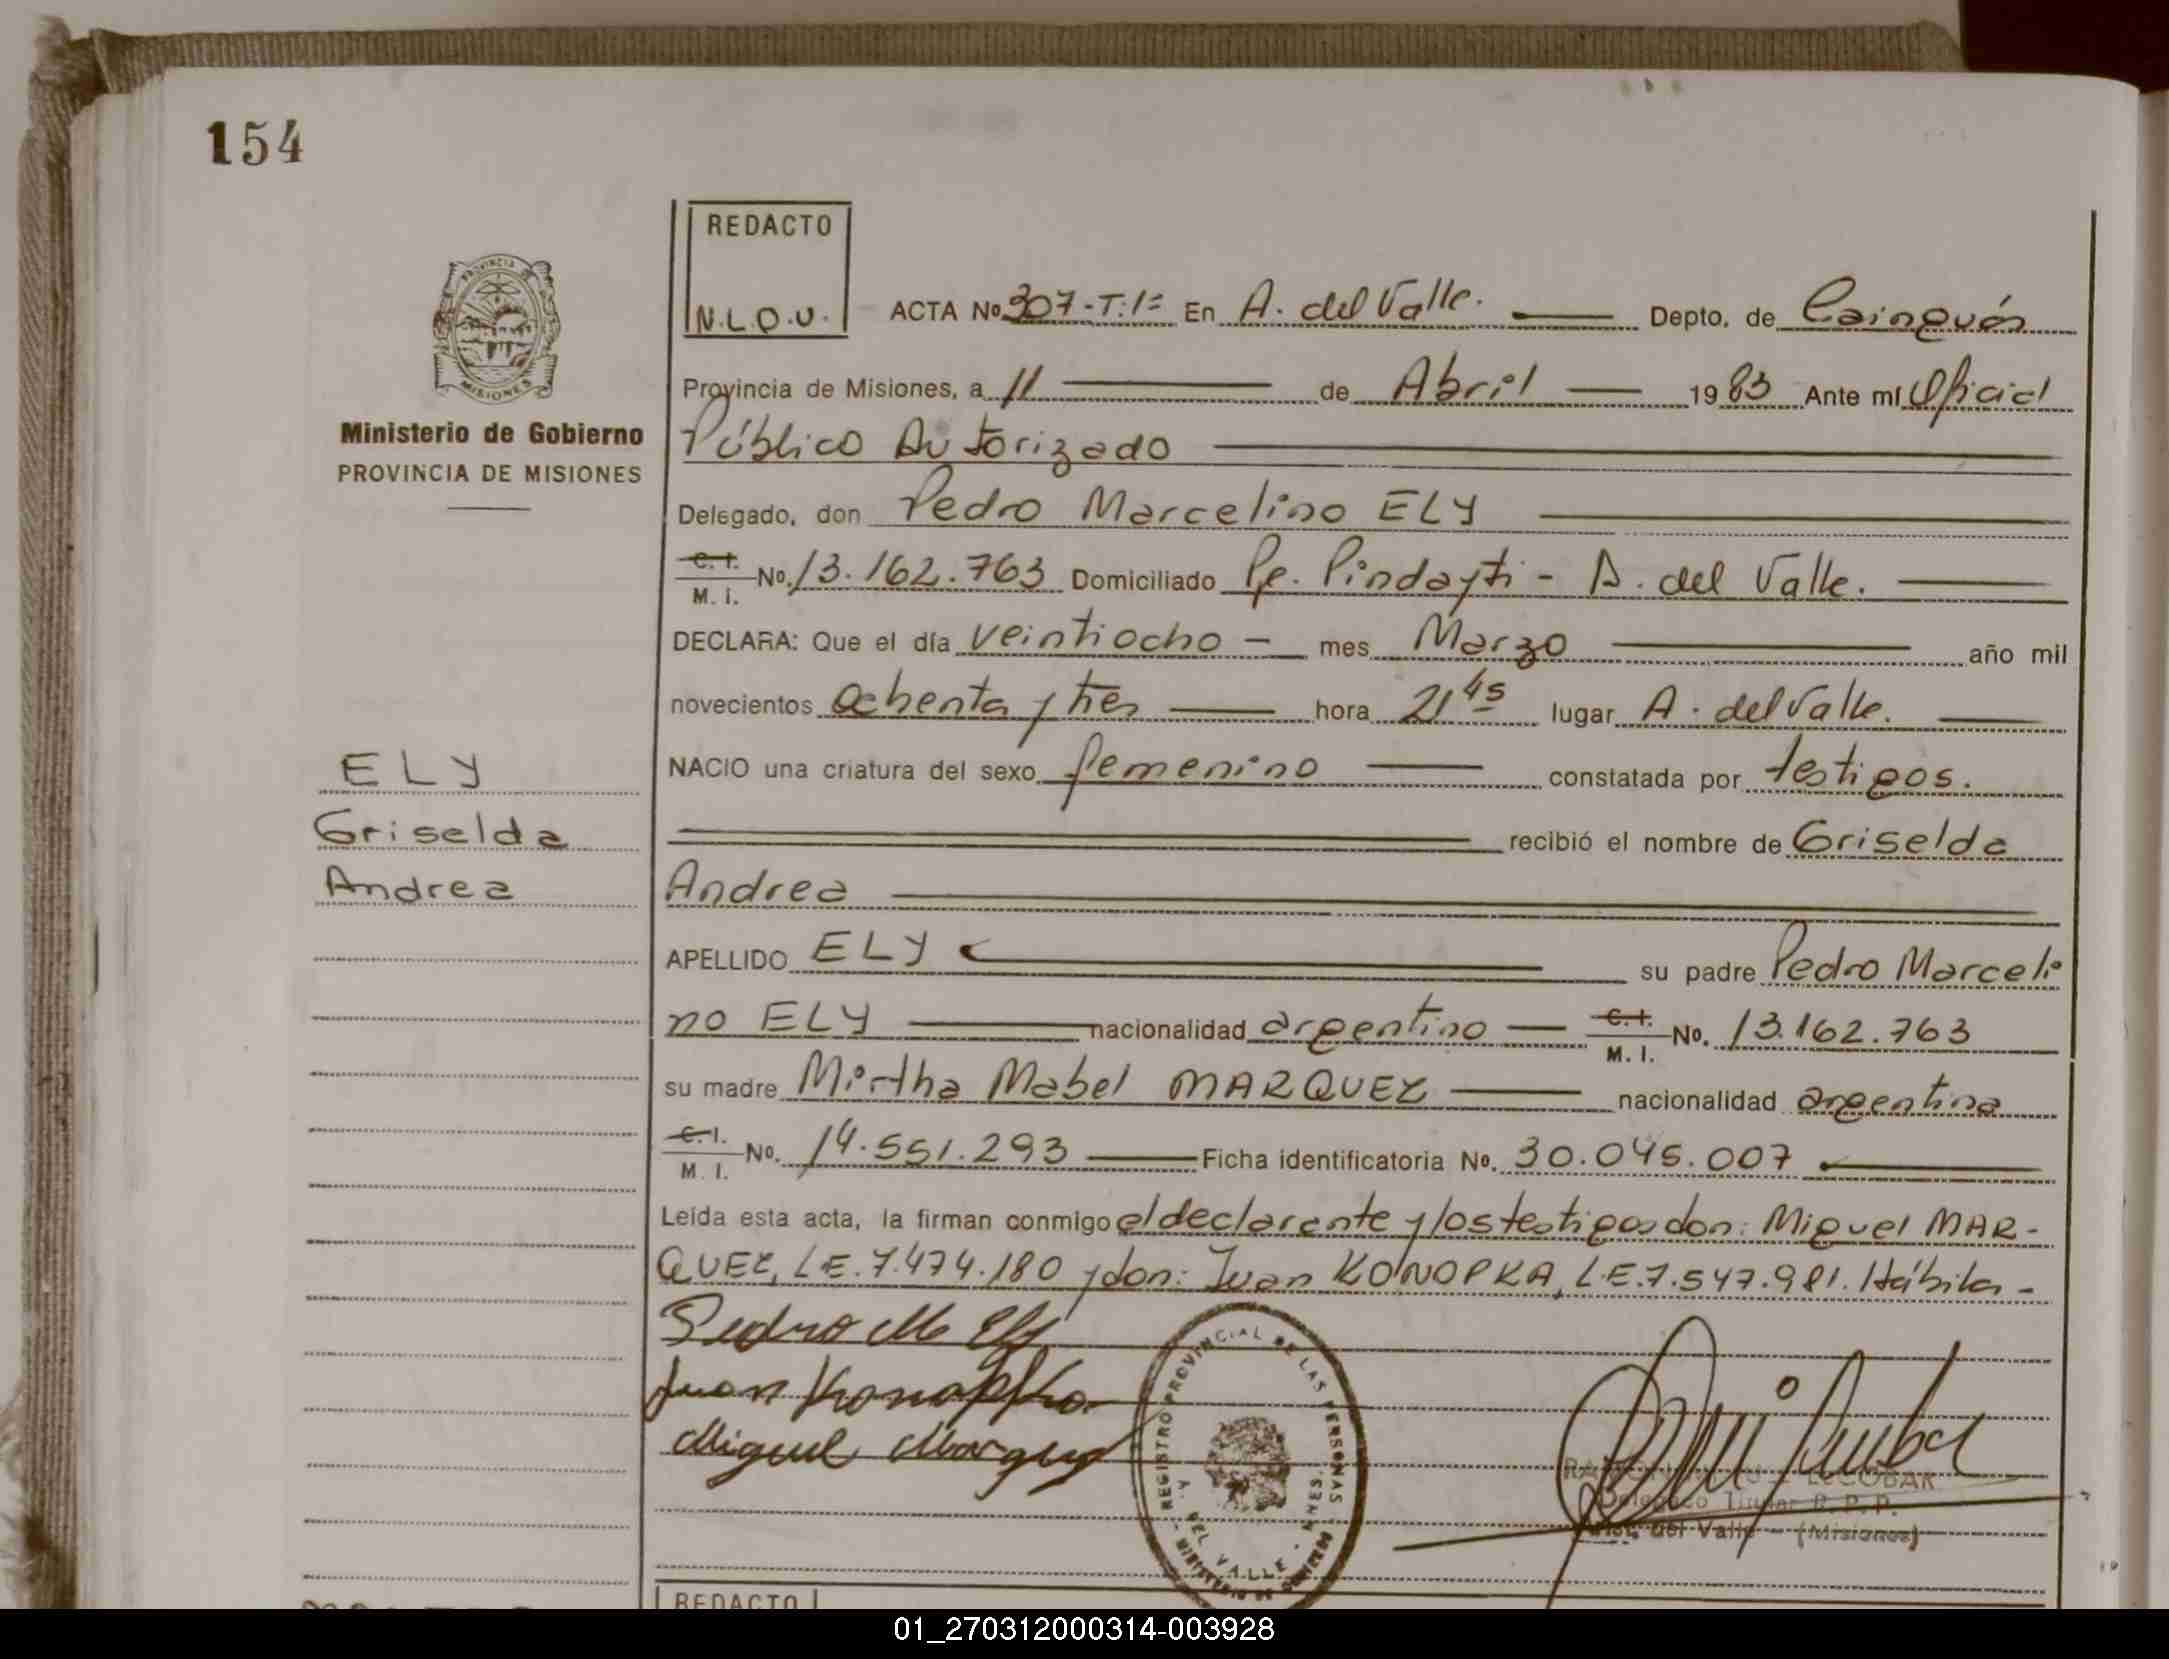 154
REDACTO
N.L.O.U.
ACTA Nº 307-T:1º En A. del Valle. Depto. de Cainguás
Provincia de Misiones, a 11 de Abril 1983 Ante mí Oficial
Público Autorizado
Delegado, don Pedro Marcelino ELY
C.I. M.I. No. 13.162.763 Domiciliado Pje. Pindayti - A. del Valle.
DECLARA: Que el día veintiocho - mes Marzo año mil
novecientos ochenta y tres hora 21 45 lugar A. del Valle.
NACIO una criatura del sexo femenino constatada por testigos.
recibió el nombre de Griselda
Andrea
APELLIDO ELY su padre Pedro Marceli
no ELY nacionalidad argentino C.I. M.I. No. 13.162.763
su madre Mirtha Mabel MARQUEZ nacionalidad argentina
C.I. M.I. No. 14.551.293 Ficha identificatoria No. 30.045.007
Leída esta acta, la firman conmigo el declarante y los testigos don: Miguel MAR-
QUEZ, L.E. 7.474.180 y don: Juan KONOPKA, L.E. 7.547.981. Hábiles -
Pedro M Ely
Juan Konopka
Miguel Marquez
PROVINCIA DE
MISIONES
Ministerio de Gobierno
PROVINCIA DE MISIONES
ELY
Griselda
Andrea
REGISTRO PROVINCIAL DE LAS PERSONAS
A. DEL VALLE - MNES.
MINISTERIO DE GOBIERNO
ESCOBAR
Delegado Titular R.P.P.
Arist. del Valle - (Misiones)
REDACTO
01_270312000314-003928